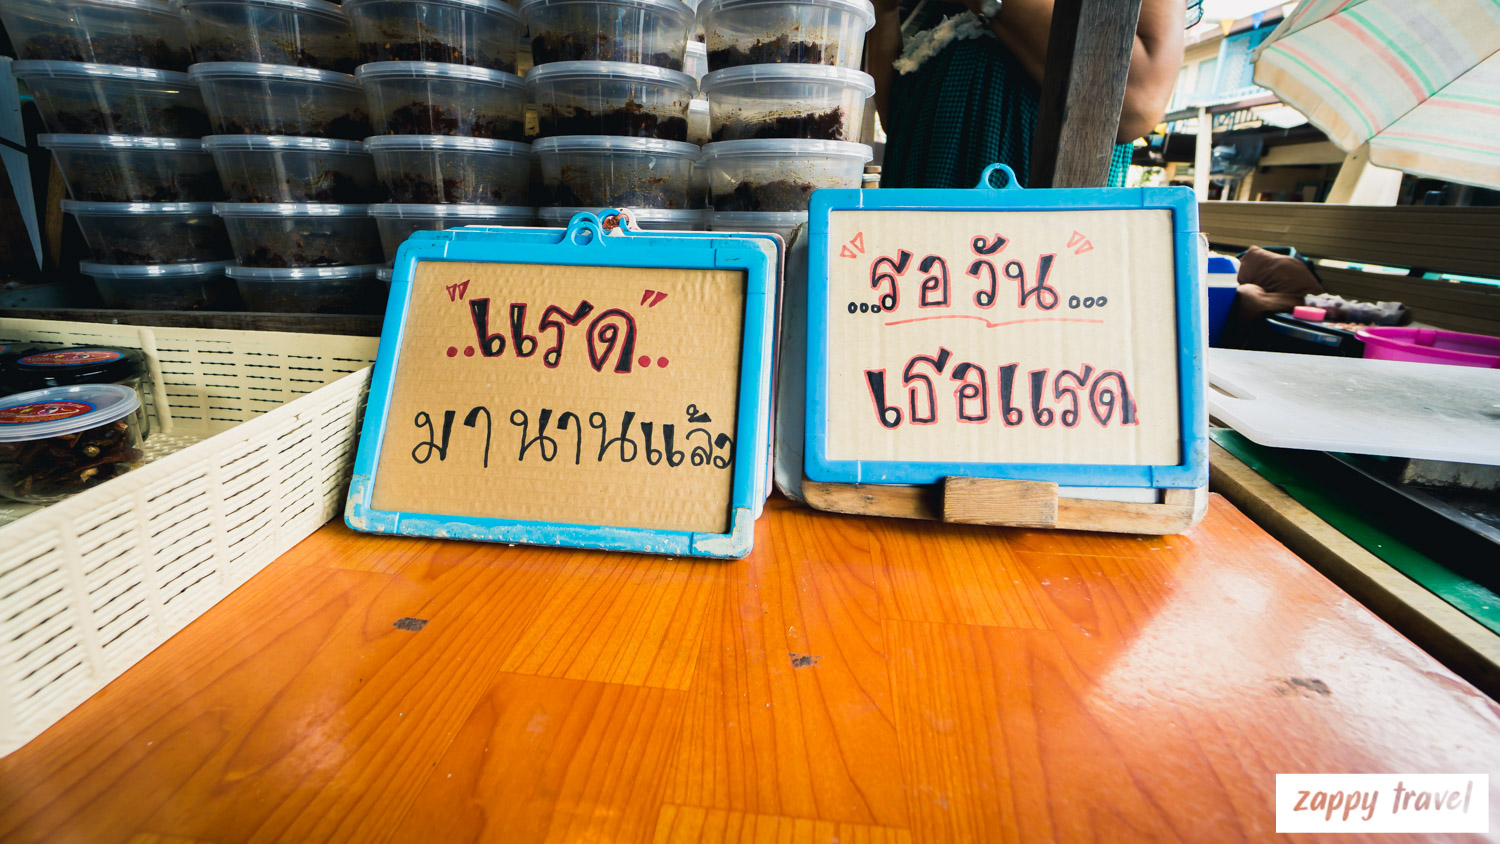 "..แรด.."
มา นานแล้ว
"...รอ วัน"...
เธอแรด
zappy travel